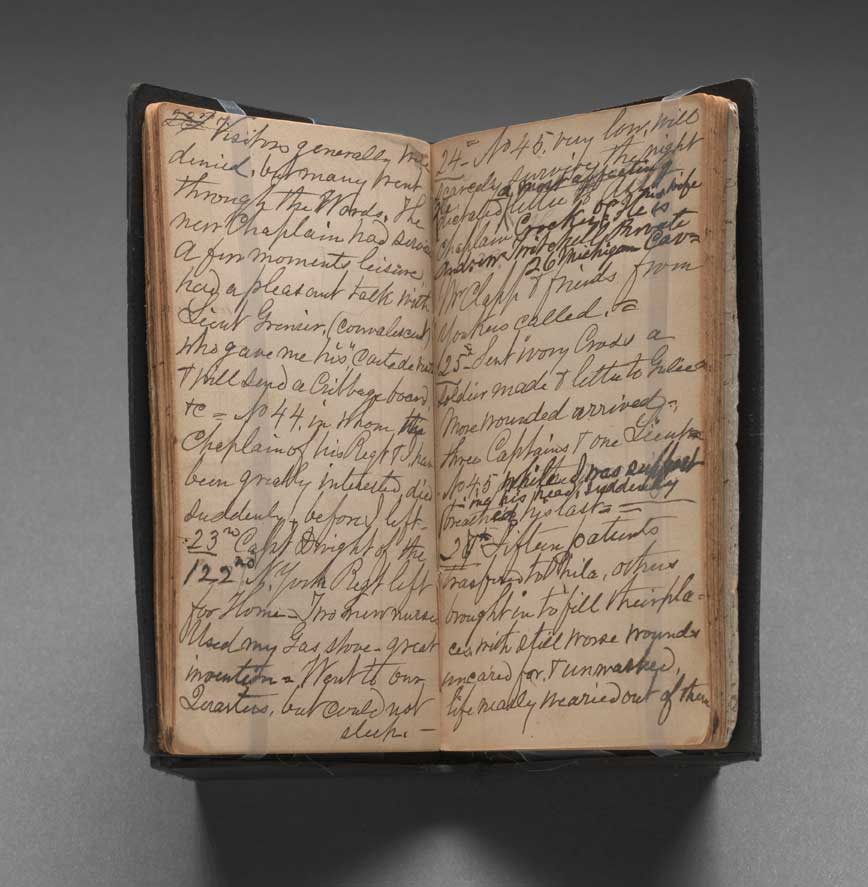 22d Visitors generally were
denied, but many went
through the Wards. The
new Chaplain had
a few moments leisure,
had a pleasant talk with
Lieut Grenier, (convalescent)
who gave me his "Carte de
& will send a Cribbage board
&c = No 44. in whom the
Chaplain of his Regt & I have
been greatly interested, died
suddenly, before I left. -
23rd Capt Dwight of the
122nd N. York Regt left
for Home = Two new nurses
Used my Gas stove - great
invention = Went to our
Quarters, but could not
sleep. -
24 = No 45, very low, will
scarcely survive the night
a most affecting
dictated letter to
Chaplain Crocker for his wife
Andrew Mitchell, private
26 Michigan Cav=
Mr Clapp & friends from
Yonkers called. =
25 = Sent ivory Cross a
soldier made & letter to
More wounded arrived =,
three Captains & one Lieut =
No 45 while I was support
ing his head, suddenly
breathed his last = =
26th Fifteen patients
transfer to Phila, others
brought in to fill their pla=
ces, with still worse wounds
uncared for, & unwashed,
life nearly wearied out of them